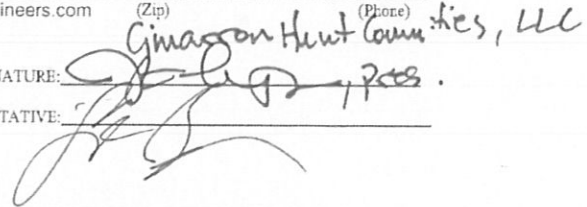 ineers.com (Zip) (Phone)
Cimarron Hunt Communities, LLC
NATURE: , Pres.
TATIVE: